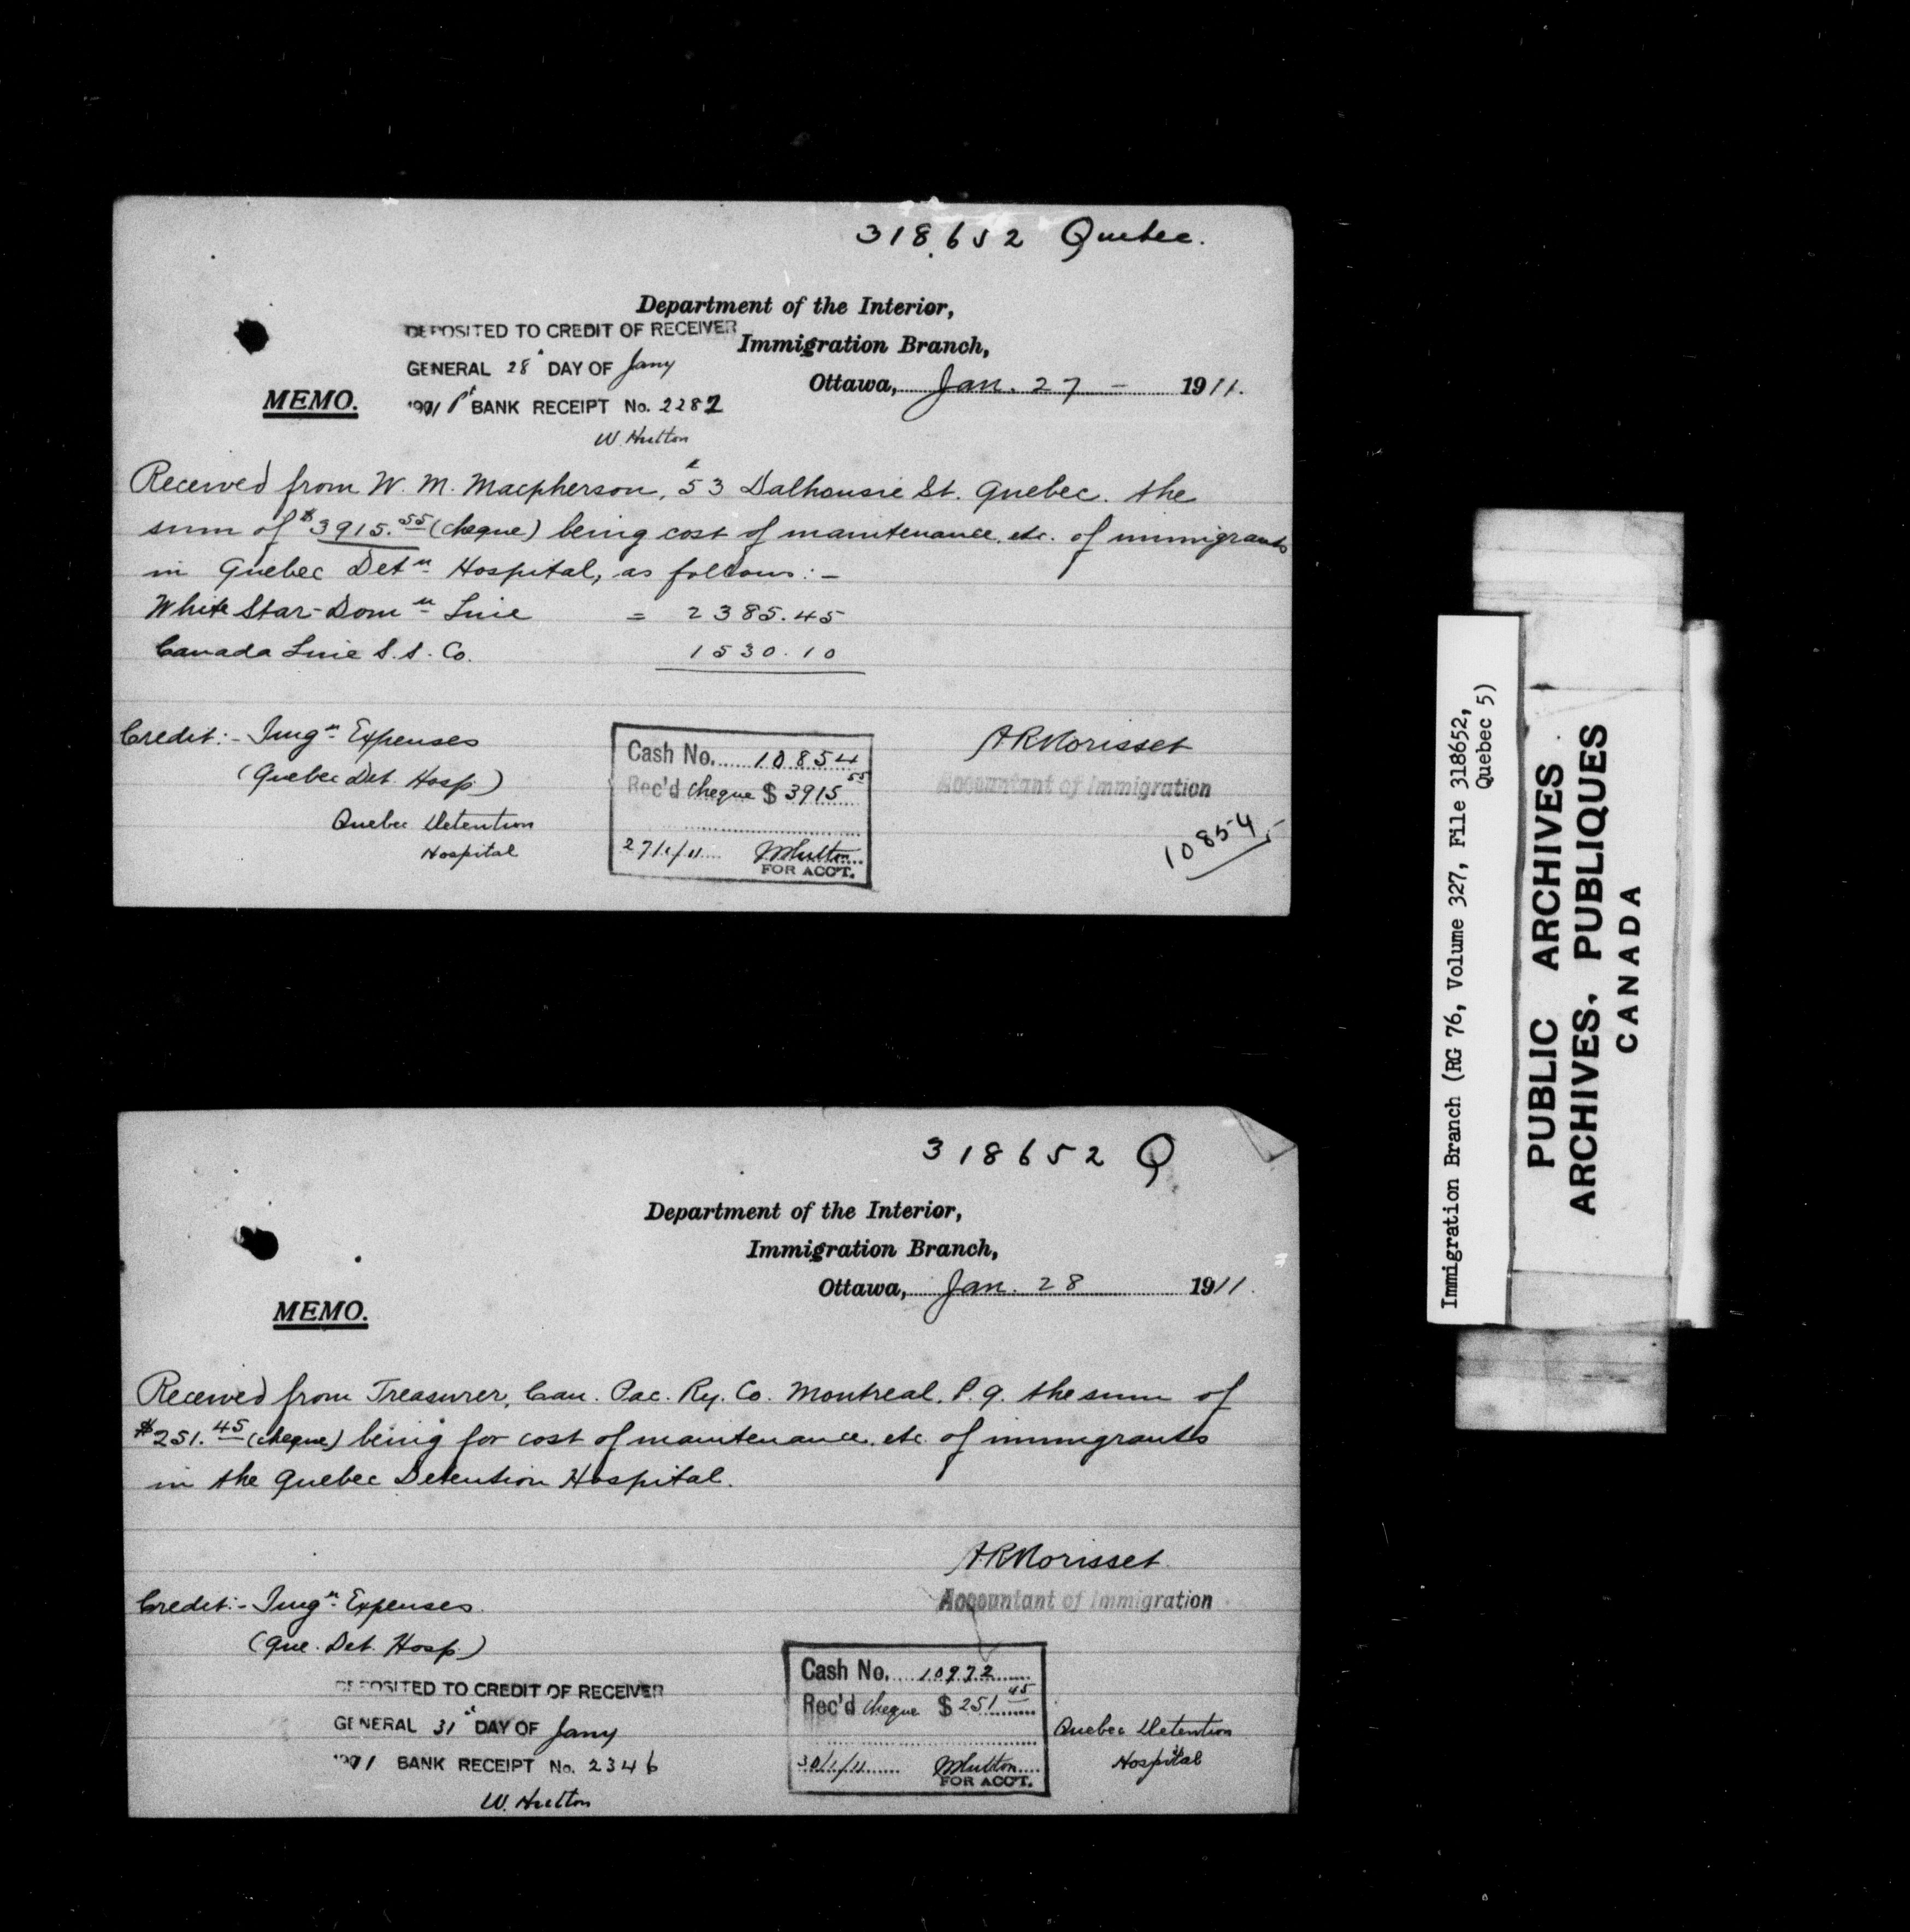 318652 Quebec.
Department of the Interior,
DEPOSITED TO CREDIT OF RECEIVER
Immigration Branch,
GENERAL 28 DAY OF Jany
Ottawa, Jan. 27 – 1911.
MEMO.
BANK RECEIPT No. 2282
W. Hutton
Received from W. M. Macpherson, 53 Dalhousie St. Quebec. the
sum of $3915.55 (cheque) being cost of maintenance, etc. of immigrants
in Quebec Detn Hospital, as follows:–
White Star-Domn Line = 2385.45
Canada Line S.S. Co. 1530.10
Credit:- Imgn Expenses
(Quebec Det. Hosp.)
Quebec Detention
Hospital
Cash No. 10854
Rec'd cheque $ 3915 55
27/1/11 W Hutton
FOR ACCT.
A R Morisset
Accountant of Immigration
10854
318652 Q
Department of the Interior,
Immigration Branch,
Ottawa, Jan. 28 1911.
MEMO.
Received from Treasurer, Can. Pac. Ry. Co. Montreal, P.Q. the sum of
$251.45 (cheque) being for cost of maintenance, etc. of immigrants
in the Quebec Detention Hospital.
A R Morisset
Accountant of Immigration
Credit:- Imgn Expenses.
(Que. Det. Hosp.)
DEPOSITED TO CREDIT OF RECEIVER
GENERAL 31st DAY OF Jany
BANK RECEIPT No. 2346
W. Hutton
Cash No. 10972
Rec'd cheque $ 251 45
30/1/11 W Hutton
FOR ACCT.
Quebec Detention
Hospital
Immigration Branch (RG 76, Volume 327, File 318652,
Quebec 5)
PUBLIC ARCHIVES
ARCHIVES. PUBLIQUES
CANADA